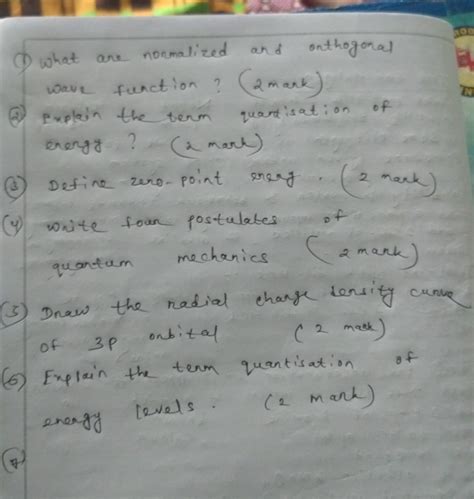 (1) What are normalized and orthogonal
wave function ? (2 mark)
(2) Explain the term quantisation of
energy ? (2 mark)
(3) Define zero-point energ . (2 mark)
(4) Write four postulates of
quantum mechanics (2 mark)
(5) Draw the radial charge density curve
of 3p orbital (2 mark)
(6) Explain the term quantisation of
energy levels . (2 mark)
(7)